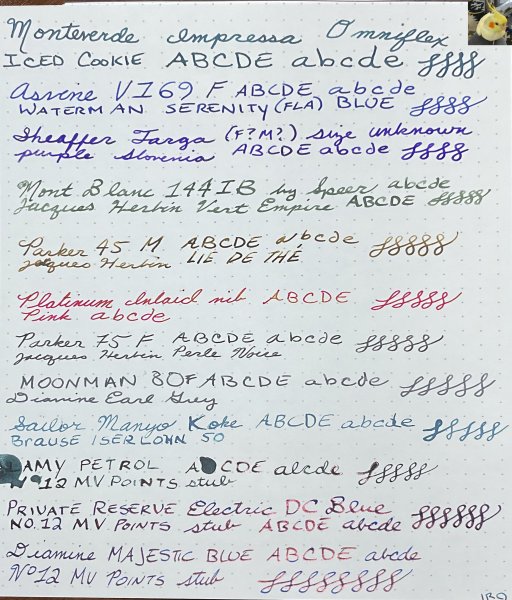 Monteverde Impressa Omniflex
ICED COOKIE ABCDE abcde
Asvine V169 F ABCDE abcde
WATERMAN SERENITY (FLA) BLUE
Sheaffer Targa (F? M?) size unknown
purple Slovenia ABCDE abcde
Mont Blanc 144 IB by Speer abcde
Jacques Herbin Vert Empire ABCDE
Parker 45 M ABCDE abcde
Jacques Herbin LIE DE THÉ
Platinum Inlaid nib ABCDE
Pink abcde
Parker 75 F ABCDE abcde
Jacques Herbin Perle Noire
MOONMAN 80F ABCDE abcde
Diamine Earl Grey
Sailor Manyo Koke ABCDE abcde
BRAUSE ISERLOHN 50
LAMY PETROL ABCDE abcde
Nº 12 MV POINTS stub
PRIVATE RESERVE Electric DC Blue
NO. 12 MV POINTS stub ABCDE abcde
Diamine MAJESTIC BLUE ABCDE abcde
Nº 12 MV POINTS stub